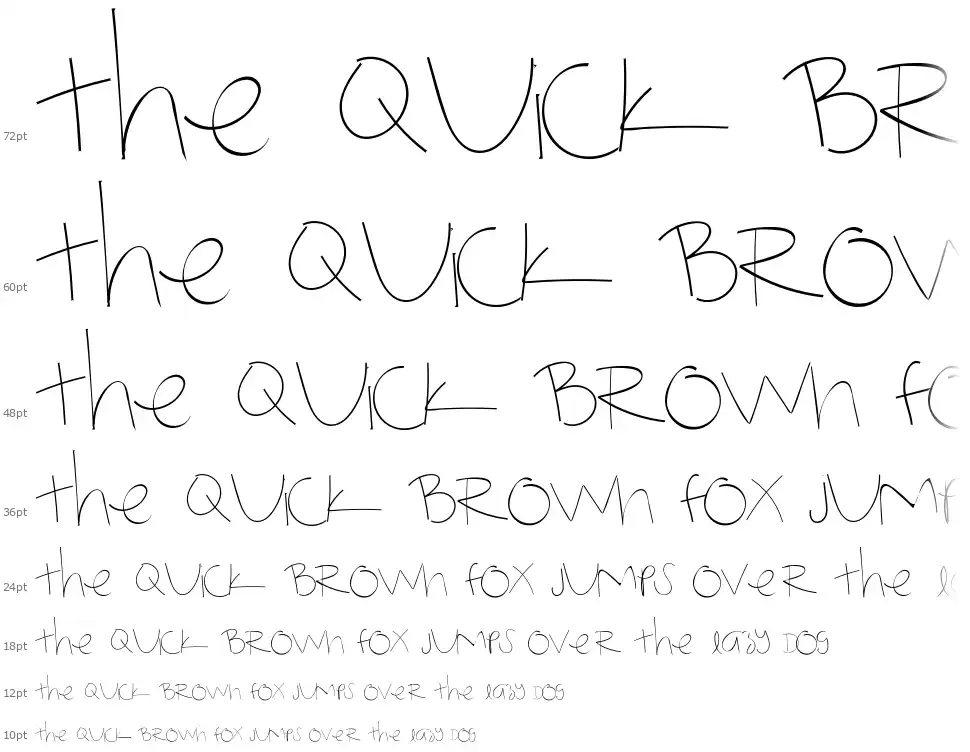 72pt the QUiCk BR
60pt the QUiCk BROW
48pt the QUiCk BROWn fO
36pt the QUiCk BROWn fOX jUMP
24pt the QUiCk BROWn fOX jUMPS OVeR the l
18pt the QUiCk BROWn fOX jUMPS OVeR the lazy DOG
12pt the QUiCk BROWn fOX jUMPS OVeR the lazy DOG
10pt the QUiCk BROWn fOX jUMPS OVeR the lazy DOG